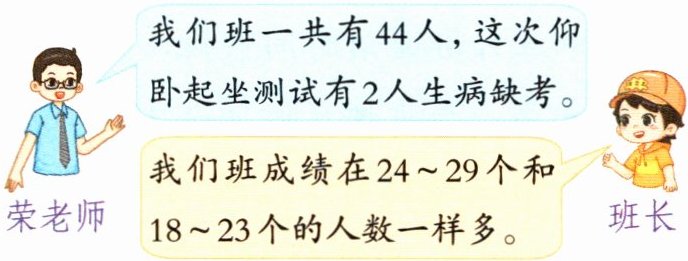 我们班一共有44人，这次仰
卧起坐测试有2人生病缺考。
我们班成绩在24～29个和
18～23个的人数一样多。
荣老师
班长